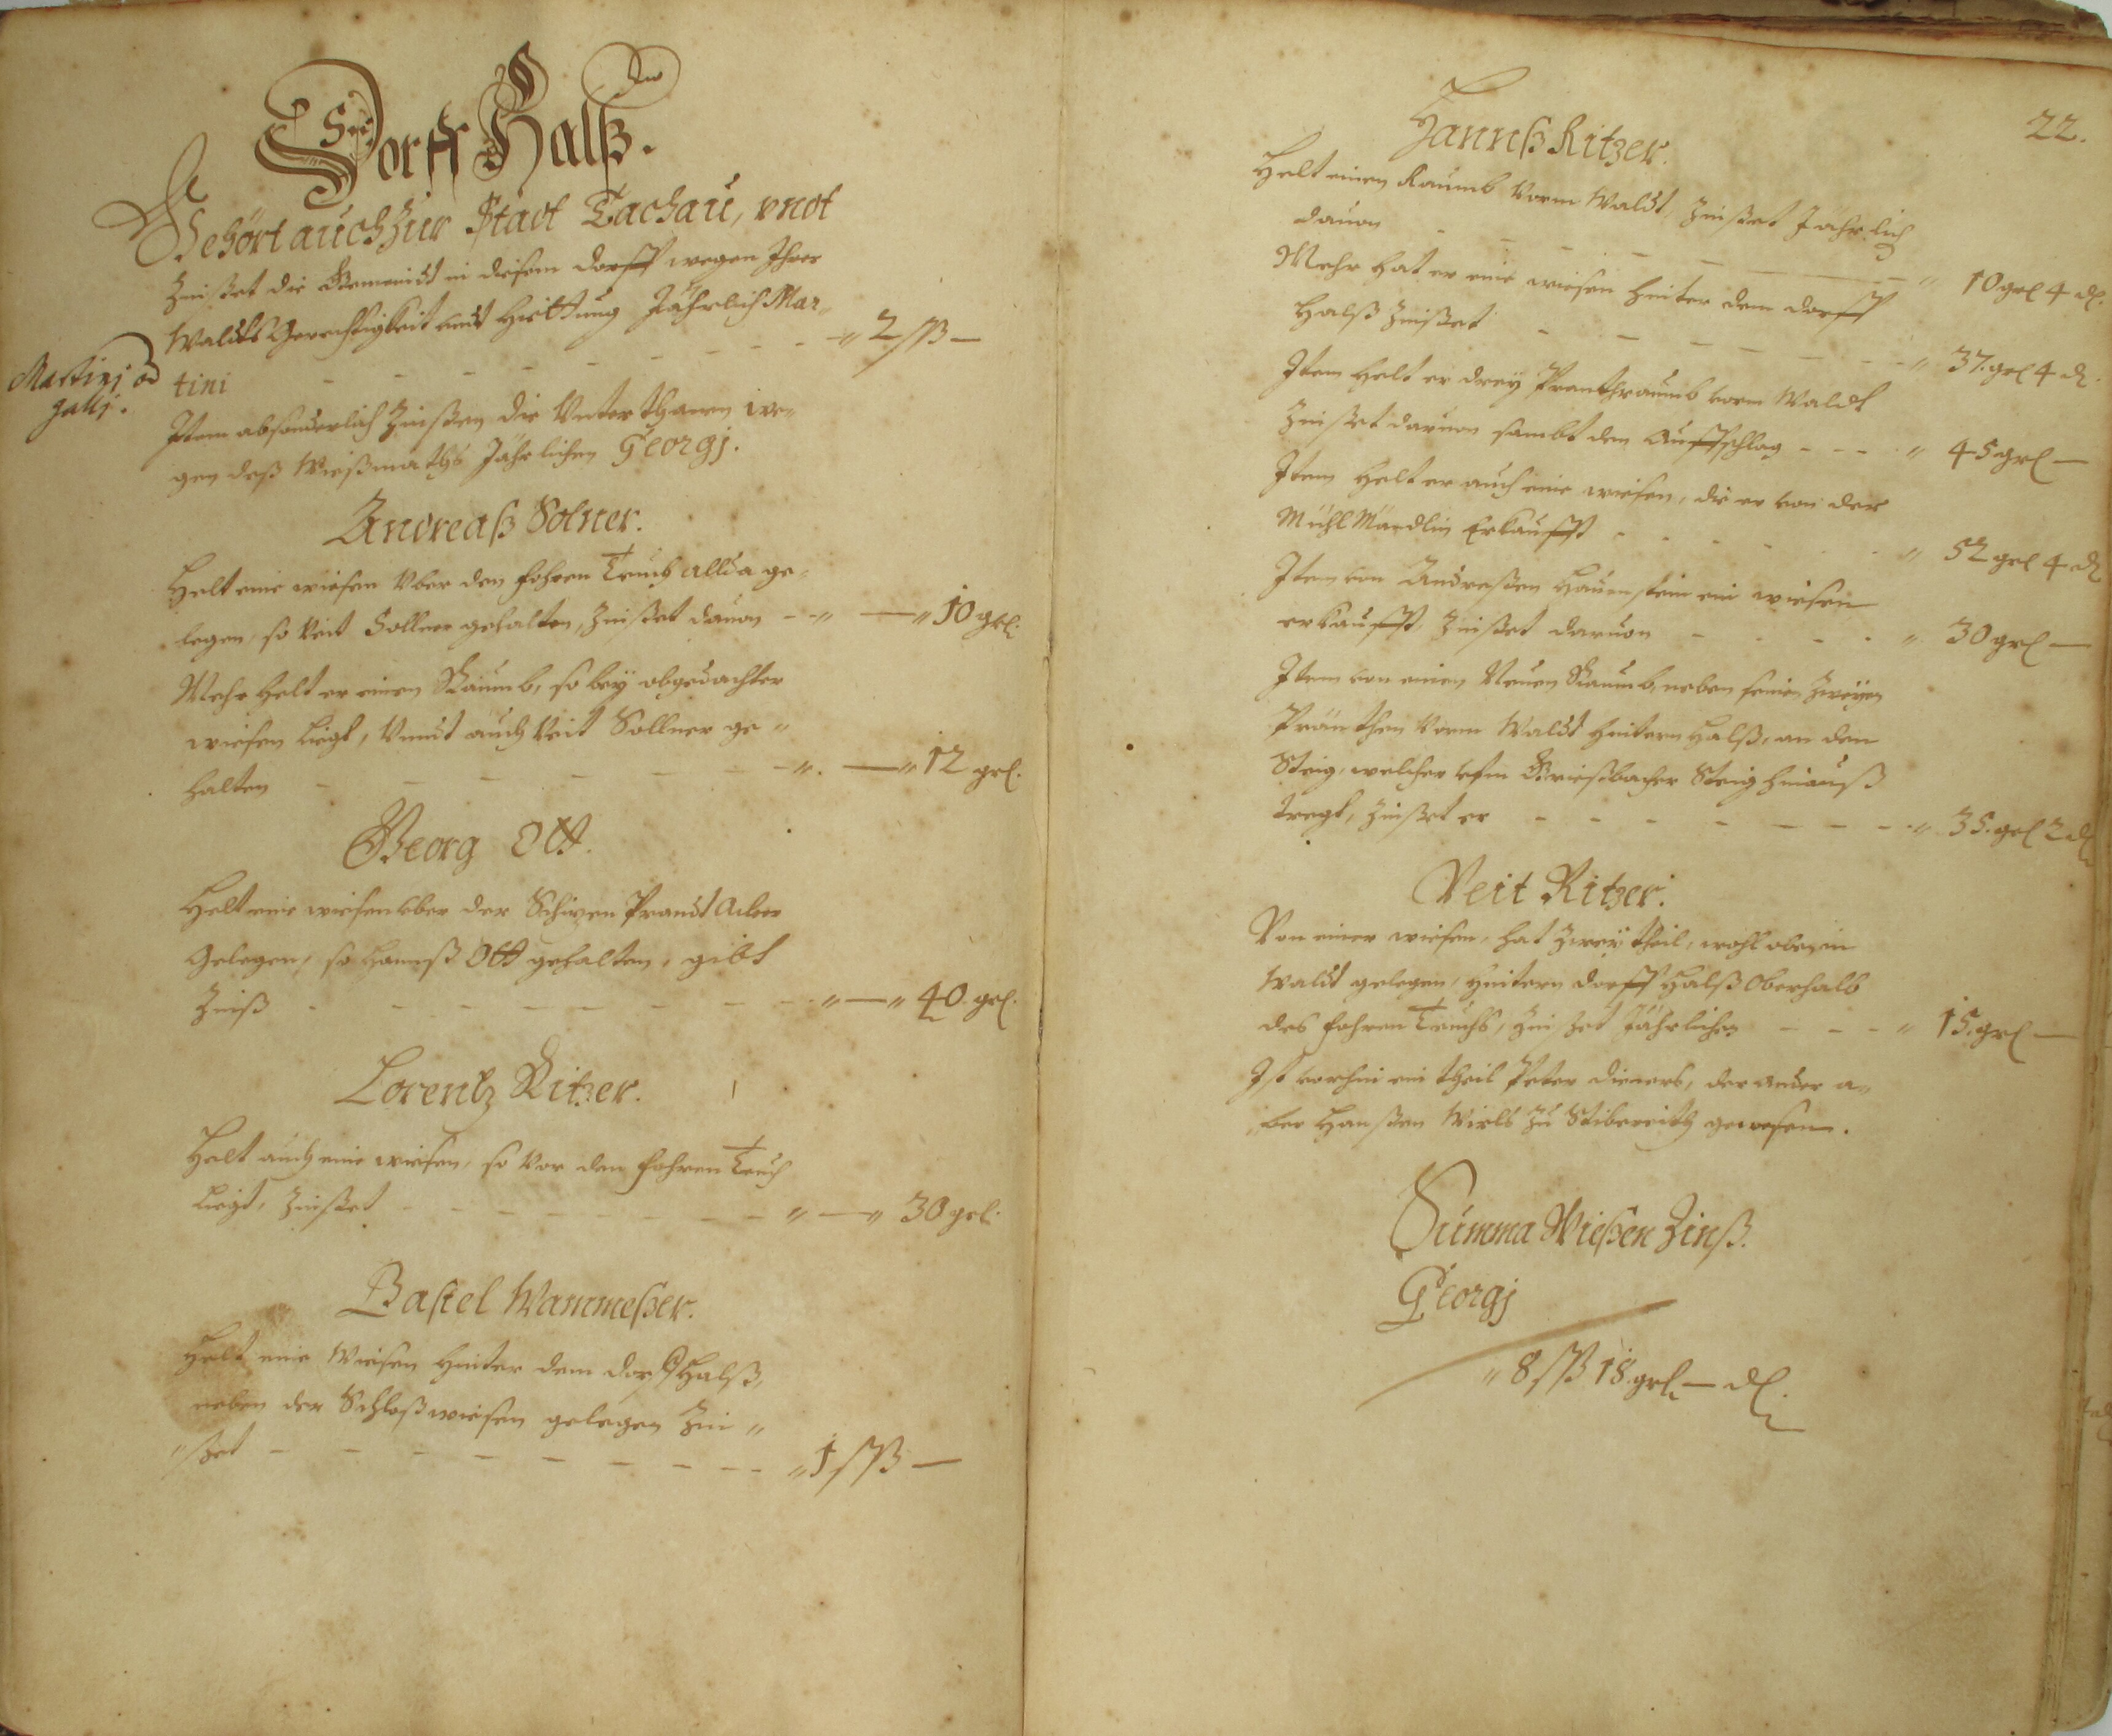 Dorff Halß.
Gehört auch Zur Stadt Tachau, vndt
Zinßet die Gemeindt in diesem dorff wegen Ihrer
Waldts Gerechtigkeit undt Hiettung Jährlich Mar„
tini - - - - - - - - „ 2 ßß —
Martini od
galli.
Item absonderlich Zinßen die Vnterthanen we„
gen deß Wießmaths Jährlichen Georgj.
Andreaß Solner.
Helt eine wiesen Vber den fohren Teuch allda ge„
legen, so Veit Sollner gehalten, Zinßet dauon - - „ — „ 10 grl:
Mehr helt er einen Raumb, so bey obgedachter
wiesen Liegt, Vnndt auch Veit Sollner ge„
halten - - - - - - - „. — „ 12 grl.
Georg Ott.
Helt eine wiesen vber der Prandt Acker
Gelegen, so Hannß Ott gehalten, gibt
Zinß - - - - - - - „ — „ 40. grl.
Lorentz Ritzer.
Helt auch eine wiesen, so Vor den fohren Teuch
Liegt, Zinßet - - - - - - „ — „ 30 grl.
Bastel Wammeßer.
Helt eine Wiesen Hinter dem dorff Halß,
neben der Schloßwiesen gelegen Zin„
„ßet - - - - - - - - „ 1 ßß —
22.
Hannß Ritzer.
Helt einen Raumb Vorm Waldt, Zinßet Jährlich
dauon - - - - - „ 10 grl 4 dl.
Mehr hat er eine wiesen hinter dem dorff
Halß Zinßet - - - - - - „ 37. grl 4 dl.
Item helt er drey Prandtraumb vorm Waldt
Zinßet daruon sambt den Auffschlag - - - „ 45 grl —
Item helt er auch eine wiesen, die er von der
Mühl Mändlin Erkaufft - - - - - „ 52 grl 4 dl
Item von Andreßen Hauenstein ein wiesen
erkaufft, Zinßet daruon - - - - „ 30 grl —
Item von einen Neuen Raumb, neben seinen Zweyen
Pränthen Vorm Waldt hintern Halß, an den
Steig, welcher vfm Grießbacher Steig hinauß
tregt, Zinßet er - - - - - - - „ 35. grl 2 dl
Veit Ritzer.
Von einer wiesen, hat Zwey theil, wohl oben in
Waldt gelegen, hintern dorff Halß Oberhalb
des fohren Teuchs, Zinßet Jährlichen - - - „ 15. grl —
Ist vorhin ein theil Peter dieners, der ander a„
„ber Hanßen Wirls Zu Stibereith gewesen.
Summa Wießen Zinß.
Georgj
„ 8 ßß 18. grl — dl.